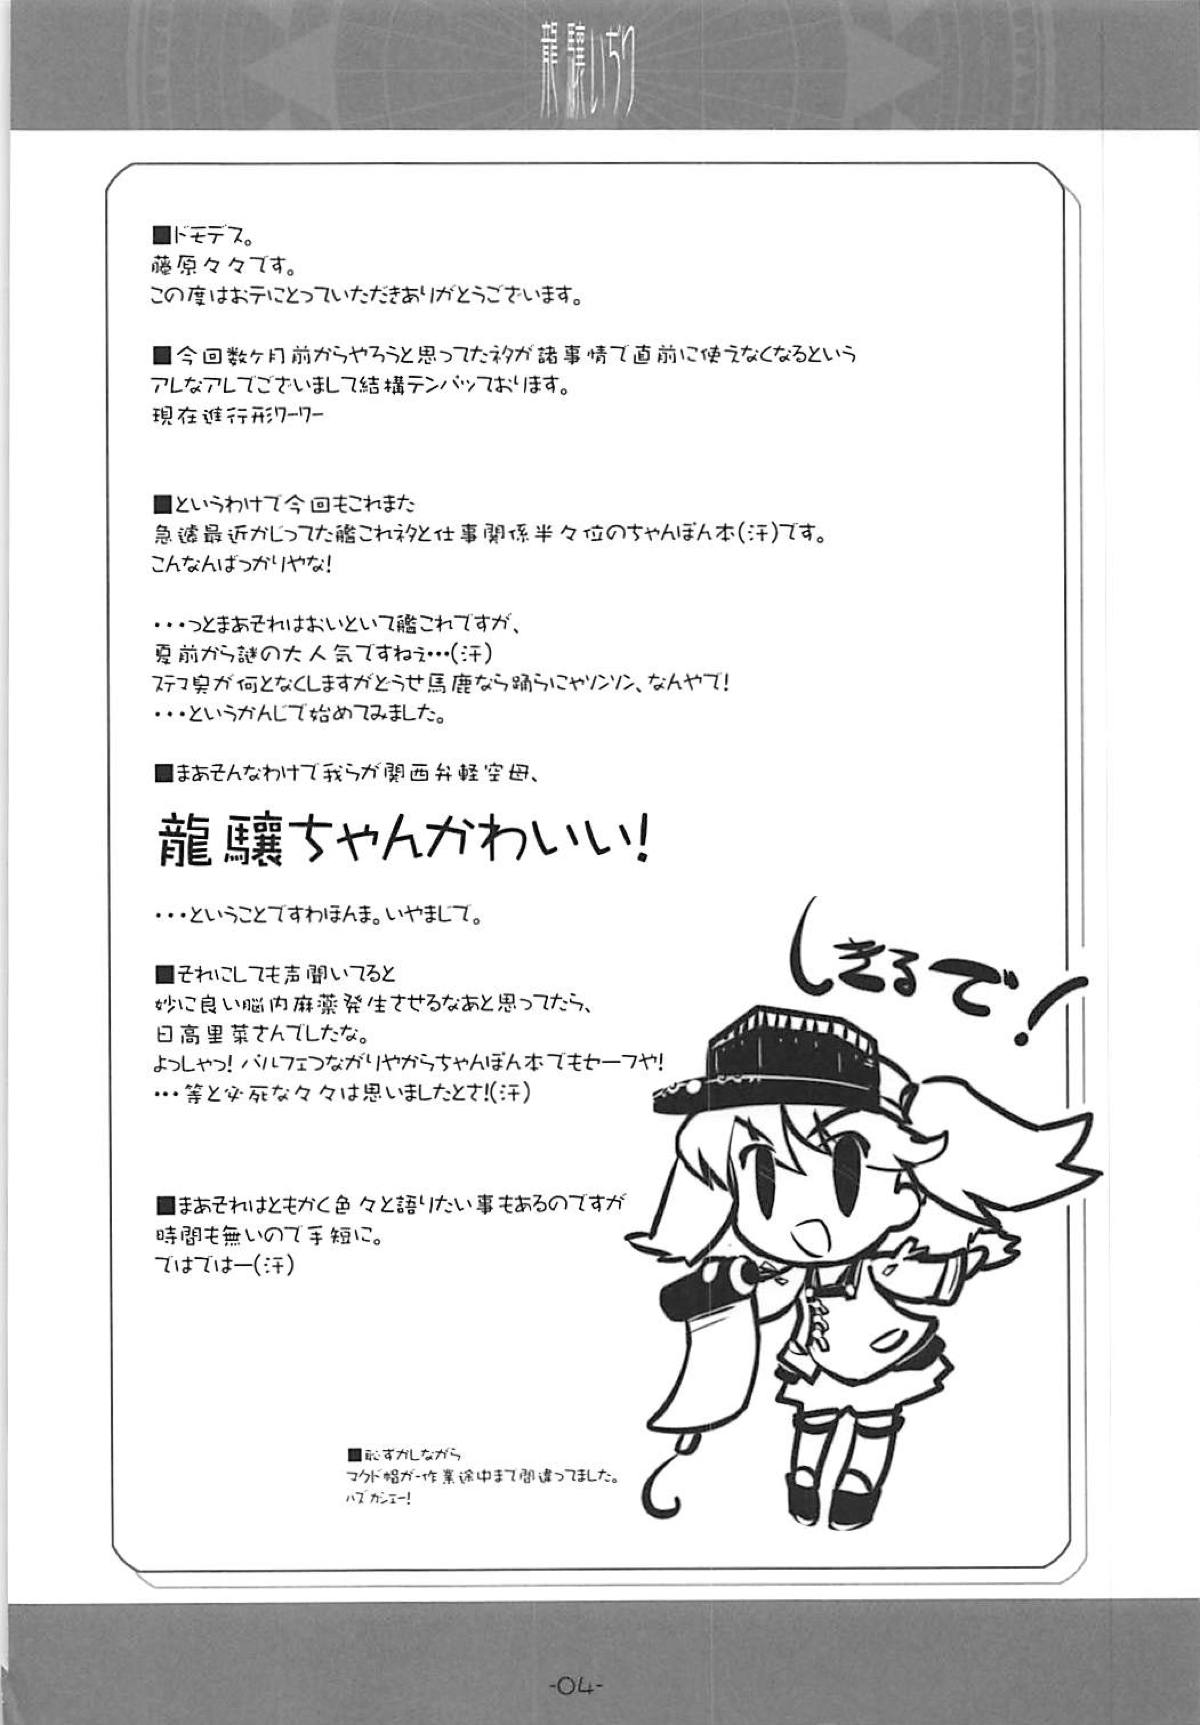 龍驤いぢり
■ドモデス。
藤原々々です。
この度はお手にとっていただきありがとうございます。
■今回数ヶ月前からやろうと思ってたﾈﾀが諸事情で直前に使えなくなるという
アレなアレでございまして結構テンパッております。
現在進行形ﾜｰﾜｰ
■というわけで今回もこれまた
急遽最近かじってた艦これﾈﾀと仕事関係半々位のちゃんぽん本(汗)です。
こんなんばっかりやな!
・・・っとまあそれはおいといて艦これですが、
夏前から謎の大人気ですねぇ・・・(汗)
ｽﾃﾏ臭が何となくしますがどうせ馬鹿なら踊らにゃソンソン、なんやで!
・・・というかんじで始めてみました。
■まあそんなわけで我らが関西弁軽空母、
龍驤ちゃんかわいい!
・・・ということですわほんま。いやまじで。
■それにしても声聞いてると
妙に良い脳内麻薬発生させるなあと思ってたら、
日高里菜さんでしたな。
よっしゃっ! パルフェつながりやからちゃんぽん本でもセーフや!
・・・等と必死な々々は思いましたとさ!(汗)
しきるで!
■まあそれはともかく色々と語りたい事もあるのですが
時間も無いので手短に。
ではではー(汗)
■恥ずかしながら
マクド帽がｰ作業途中まで間違ってました。
ﾊｽﾞｶｼｴｰ!
-04-